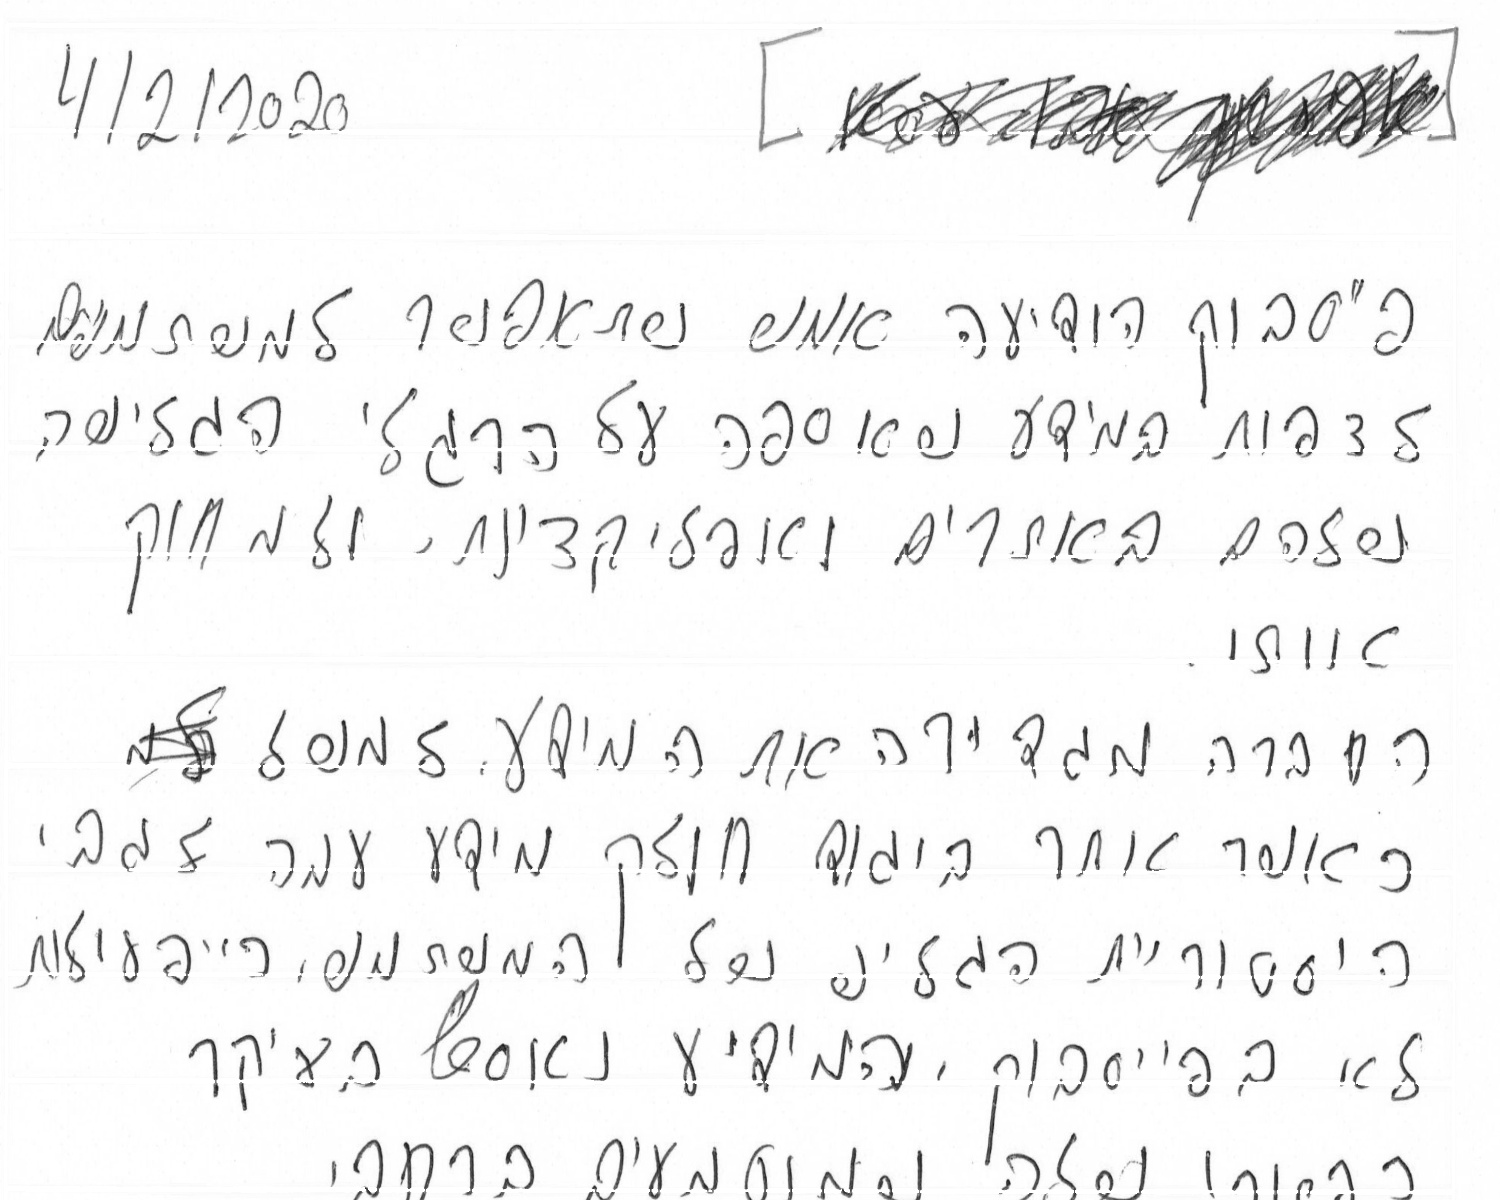 4/2/2020
פייסבוק הודיעה אמש שתאפשר למשתמשים
לצפות במידע שאוספה על הרגלי הגלישה
שלהם באתרים ואפליקציות, ולמחוק
אותו.
החברה מגדירה את המידע. למשל
כאשר אתר ביגוד חולק מידע עמה לגבי
היסטוריית הגלישה של המשתמש, כפעילות
לא בפייסבוק, המידע נאסף בעיקר
שלה שמוטמעים ברחבי